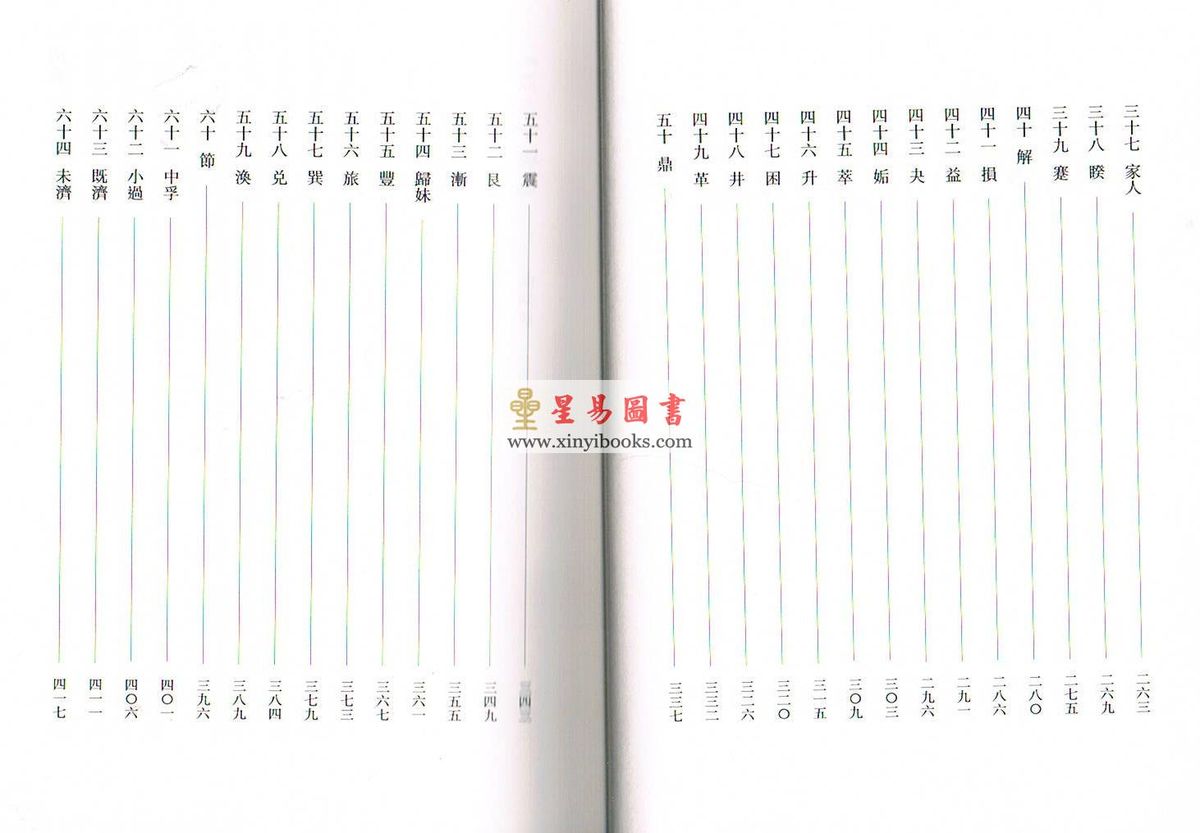 三十七 家人 二六三
三十八 睽 二六九
三十九 蹇 二七五
四十 解 二八〇
四十一 損 二八六
四十二 益 二九一
四十三 夬 二九六
四十四 姤 三〇三
四十五 萃 三〇九
四十六 升 三一五
四十七 困 三二〇
四十八 井 三二六
四十九 革 三三二
五十 鼎 三三七
五十一 震 三四三
五十二 艮 三四九
五十三 漸 三五五
五十四 歸妹 三六一
五十五 豐 三六七
五十六 旅 三七三
五十七 巽 三七九
五十八 兑 三八四
五十九 渙 三八九
六十 節 三九六
六十一 中孚 四〇一
六十二 小過 四〇六
六十三 既濟 四一一
六十四 未濟 四一七
星易圖書
www.xinyibooks.com